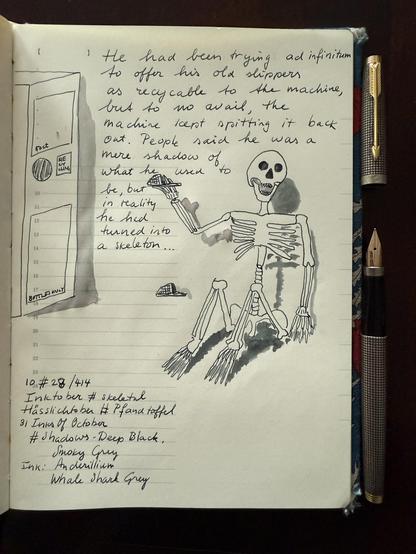 He had been trying ad infinitum
to offer his old slippers
as recycable to the machine,
but to no avail, the
machine kept spitting it back
out. People said he was a
mere shadow of
what he used to
be, but
in reality
he had
turned into
a skeleton...
BOTTLES ONLY
10 # 28 /414
Inktober # skeletal
Hässlichtober # Pfandtoffel
31 Inks Of October
# Shadows - Deep Black,
Smoky Grey
Ink: Anderillium
Whale Shark Grey